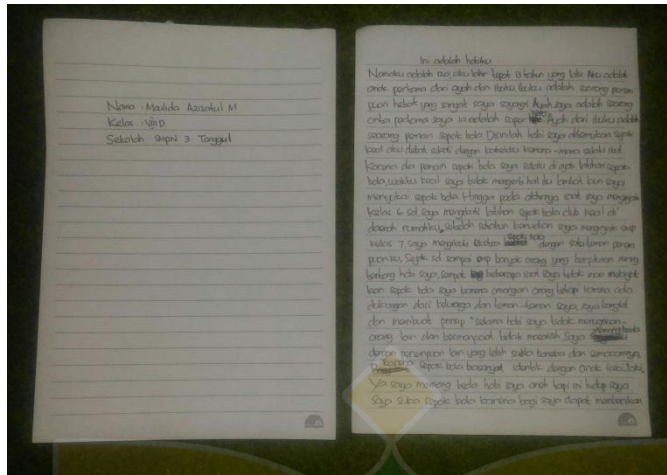 Nama : Maulida Azzatul M
Kelas : VIII D
Sekolah SMPN 3 Tanggul
Ini adalah hobiku
Namaku adalah aku lahir tepat 13 tahun yang lalu Aku adalah
anak pertama dari ayah dan ibuku Ibuku adalah seorang perem
puan hebat yang sangat saya sayangi Ayah saya adalah seorang
cinta pertama saya ia adalah super Ayah dari ibuku adalah
seorang pemain sepak bola Disinilah hobi saya ditemukan sejak
kecil aku dekat sekali dengan kakekku kemana-mana selalu ikut
Karena dia pemain sepak bola saya selalu di ajak latihan sepak
bola, waktu kecil saya tidak mengerti hal itu lambat laun saya
menyukai sepak bola Hingga pada akhirnya saat saya menginjak
kelas 6 sd saya mengikuti latihan sepak bola club kecil di
daerah rumahku, setelah setahun kemudian saya menginjak smp
kelas 7, saya mengikuti ekskul sepak bola dengan satu teman perem
puanku, Sejak sd sampai smp banyak orang yang berpikiran miring
tentang hobi saya, sempat beberapa saat saya tidak mau melanjut
kan sepak bola saya karena omongan orang tetapi karena ada
dukungan dari keluarga dan teman-teman saya, saya bangkit
dan membuat prinsip "selama hobi saya tidak merugikan
orang lain dan bermanfaat tidak masalah Saya memang beda
dengan perempuan lain yang lebih suka boneka dan semacamnya,
karena sepak bola berasal identik dengan anak laki-laki,
Ya saya memang beda hobi saya aneh tapi ini hidup saya
Saya suka sepak bola karena bagi saya dapat memberikan